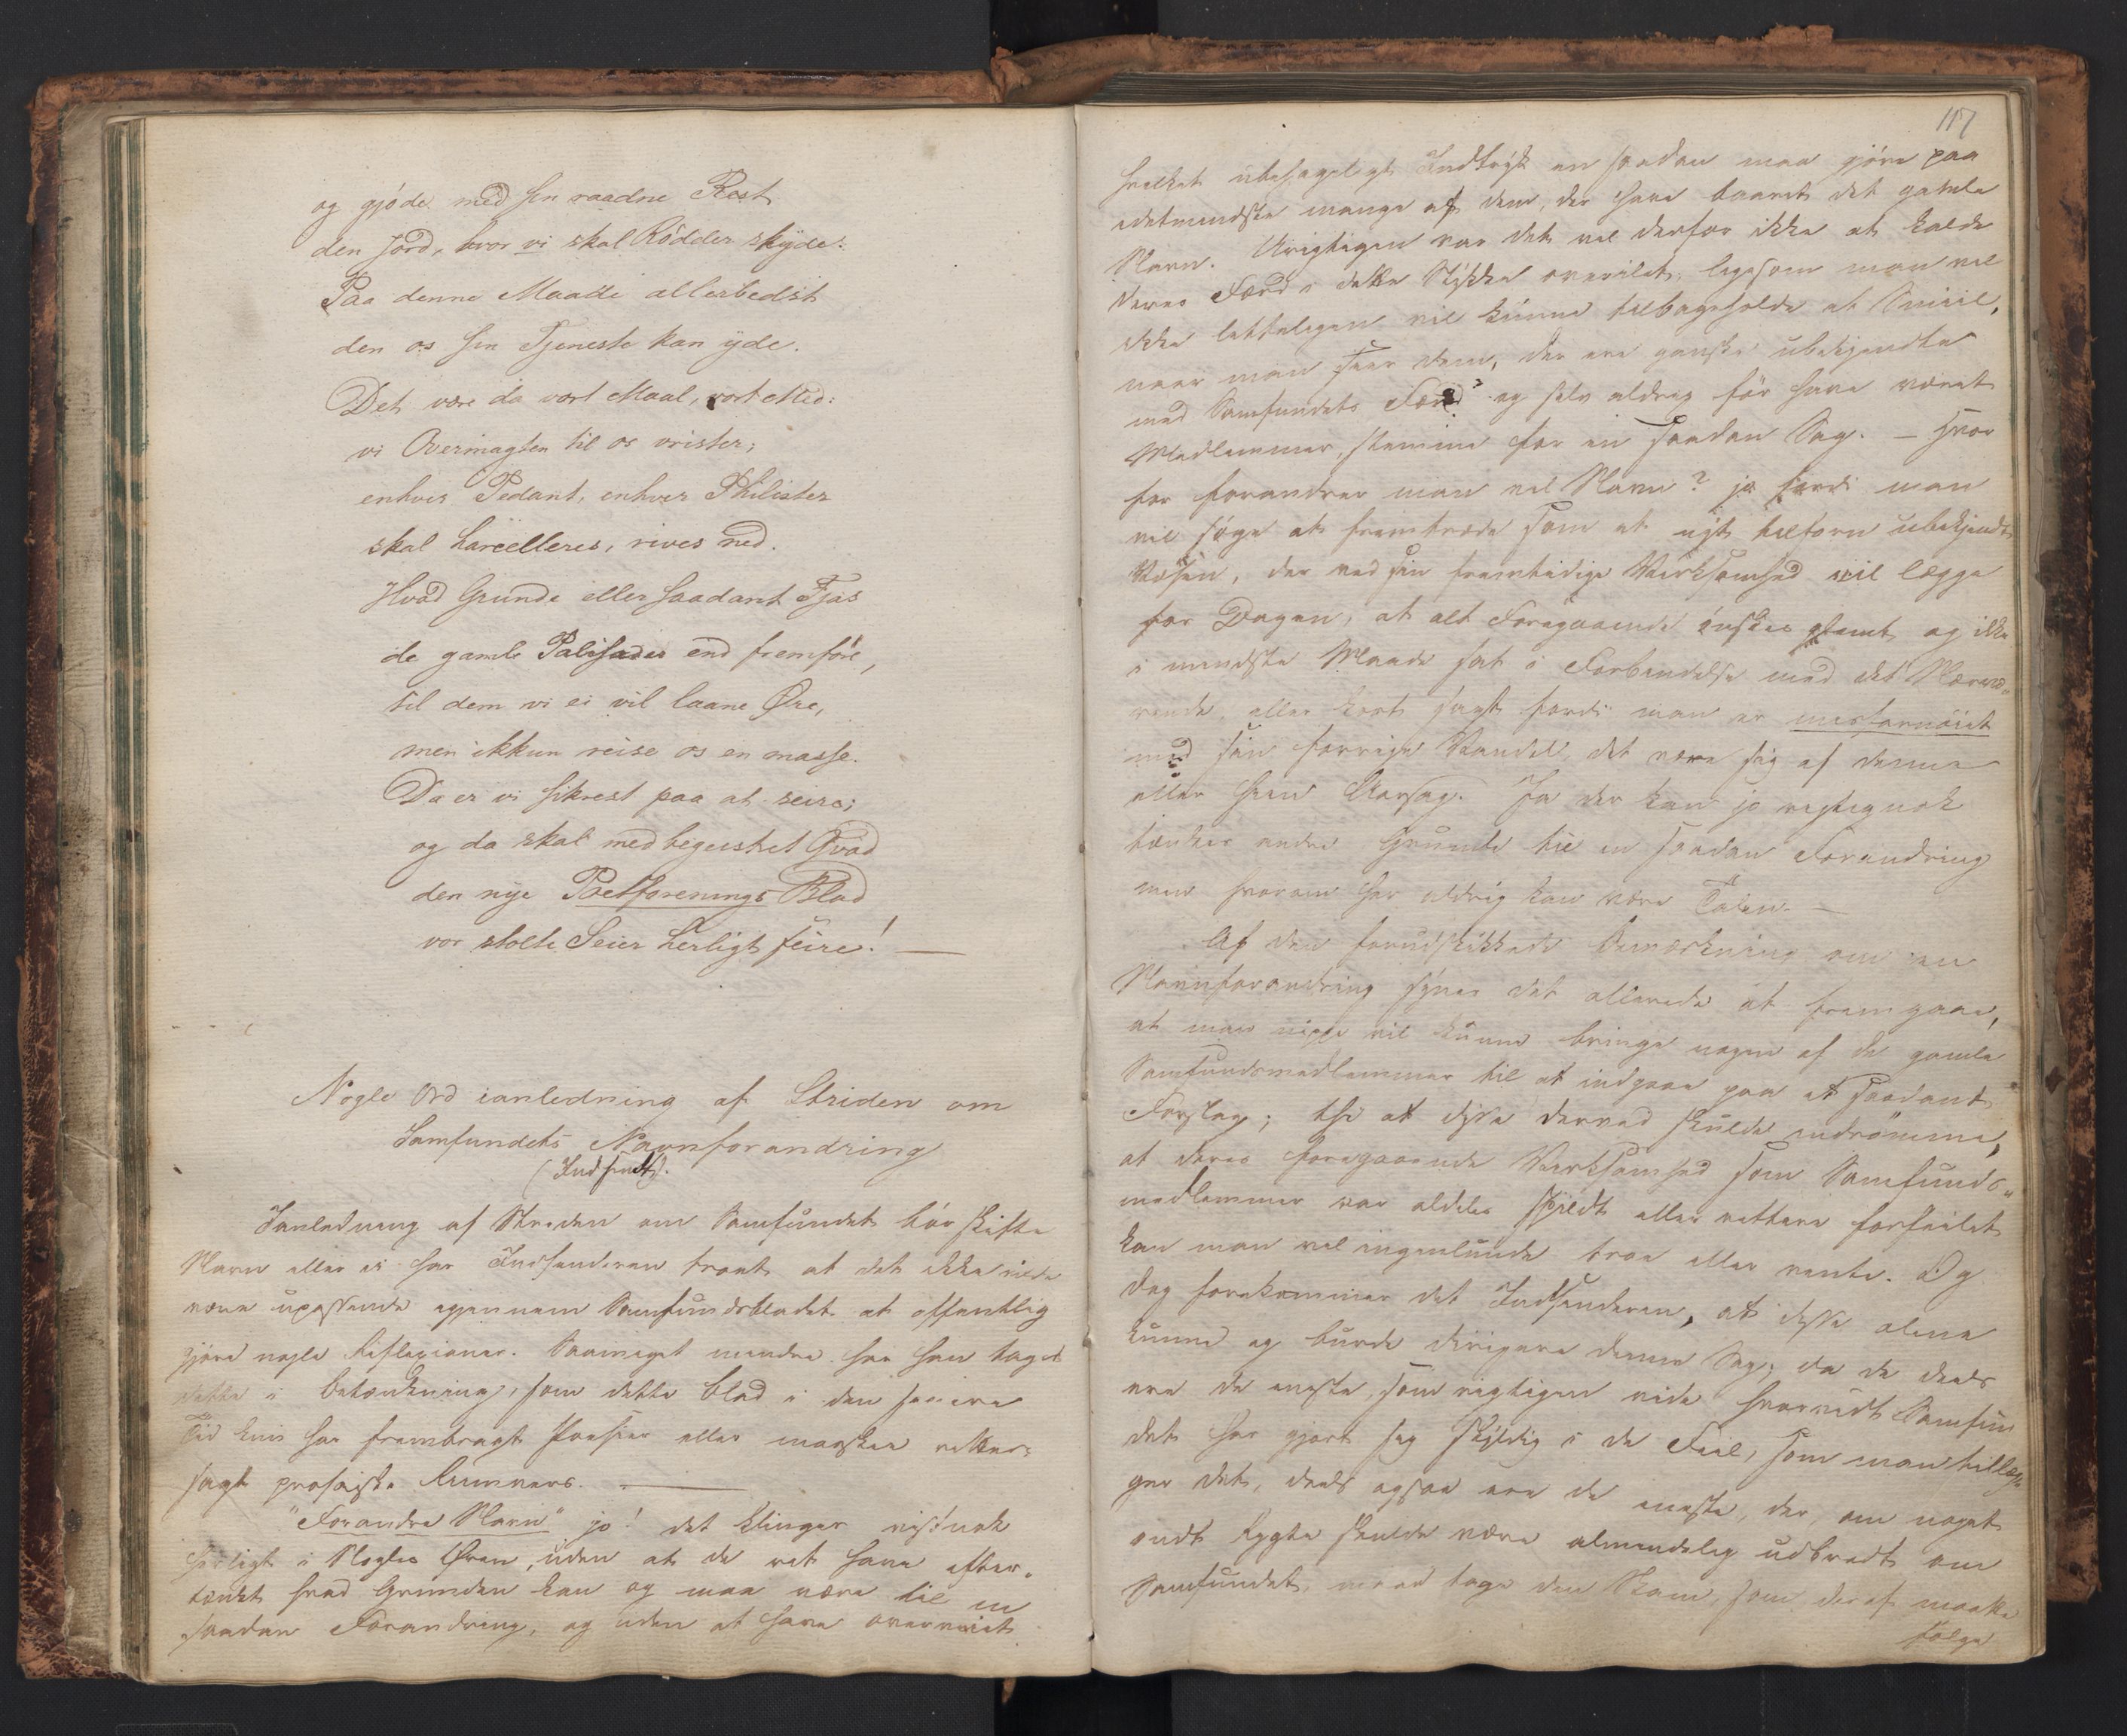 og gjöde med sin raadne Rest
den Jord, hvor vi skal Rödder skyde.
Paa denne Maade allerbedst
den os sin Tjeneste kan yde.
Det være da vort Maal, vort Med:
vi Overmagten til os vrister;
enhver Pedant, enhver Philister
skal harcelleres, rives ned.
Hvad Grunde eller saadant Fjas
de gamle Palisader end fremföre,
til dem vi ei vil laane Øre,
men ikkun reise os en masse.
Da er vi sikrest paa at seire;
og da skal med begeistret Qvad
den nye Poetforenings Blad
vor stolte Seier herligt feire! —
Nogle Ord ianledning af Striden om
Samfundets Navnforandring
(Indsendt).
Ianledning af Striden om Samfundet bör skifte
Navn eller ei har Indsenderen troet at det ikke vilde
være upassende igjennem Samfundsbladet at offentlig
gjöre nogle Reflexioner. Saameget mindre har han taget
dette i Betænkning, som dette Blad i den senere
Tid kun har frembragt Poesier eller maaskee rettere
sagt prosaiske Rimvers. —
"Forandre Navn" jo! det klinger vistnok
herligt i Nogles Øren, uden at de ret have efter-
tænkt hvad Grunden kan og maa være til en
saadan Forandring, og uden at have overveiet
117
hvilket ubehageligt Indtryk en saadan maa gjöre paa
idetmindste mange af dem, der have baaret det gamle
Navn. Urigtigen var det vel derfor ikke at kalde
deres Færd i dette Stykke overilet, ligesom man vel
ikke letteligen vil kunne tilbageholde et Smiil,
naar man seer dem, der ere ganske ubekjendte
med Samfundets Færd og selv aldrig för have været
Medlemmer, stemme for en saadan Sag. — Hvor
for forandrer man vel Navn? jo fordi man
vil söge at fremtræde som et nyt tilforn ubekjendt
Væsen, der ved sin fremtidige Virksomhed vil lægge
for Dagen, at alt Foregaaende önskes glemt og ikke
i mindste Maade sat i Forbindelse med det Nærvæ-
rende, eller kort sagt fordi man er misfornöiet
med sin forrige Vandel, det være sig af denne
eller hiin Aarsag. Ja der kan jo rigtignok
tænkes andre Grunde til en saadan Forandring
men hvorom her aldrig kan være Talen. —
Af den forudskikkede Bemærkning om en
Navnforandring synes det allerede at fremgaae,
at man neppe vil kunne bringe nogen af de gamle
Samfundsmedlemmer til at indgaae paa et saadant
Forslag; thi at disse derved skulde indrömme,
at deres foregaaende Virksomhed som Samfunds-
medlemmer var aldeles spildt eller rettere forfeilet
kan man vel ingenlunde troe eller vente. Og
dog forekommer det Indsenderen, at disse alene
kunne og burde dirigere denne Sag; da de deels
ere de eneste, som rigtigen vide hvorvidt Samfun
det har gjort sig skyldig i de Feil, som man tillæg-
ger det, deels ogsaa ere de eneste, der, om noget
ondt Rygte skulde være almindelig udbredt om
Samfundet, maae tage den Skam, som deraf maatte
fölge